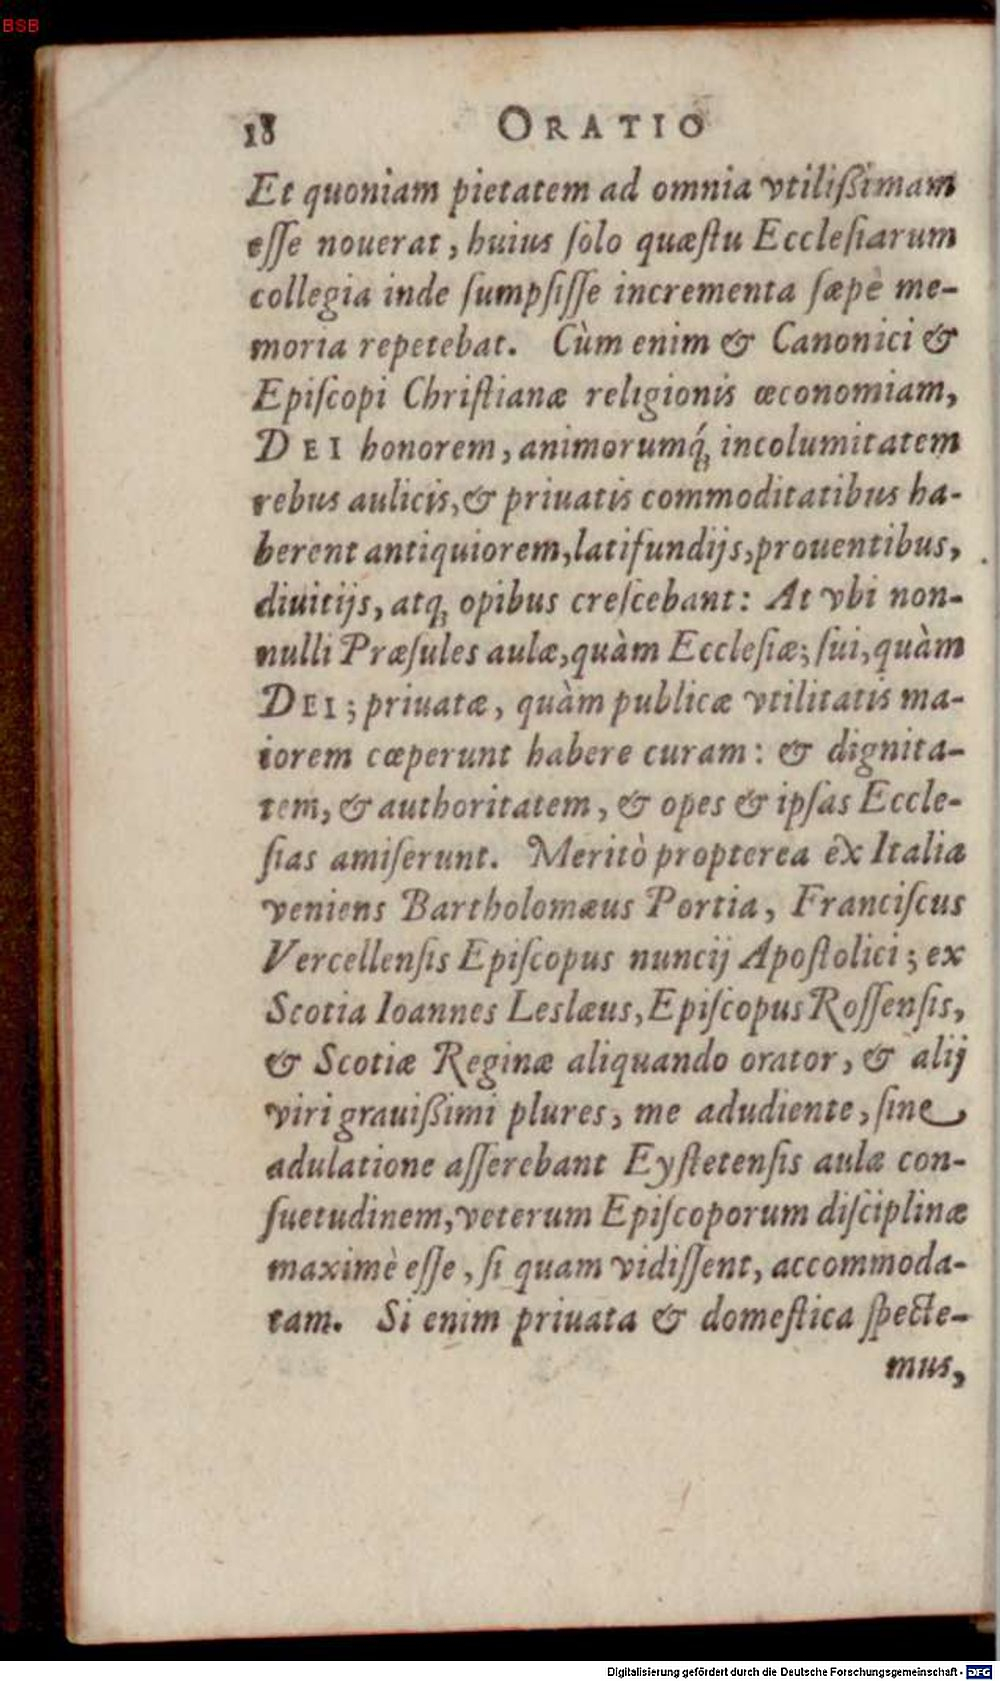 BSB
18 ORATIO
Et quoniam pietatem ad omnia vtilißimam
eſſe nouerat, huius ſolo quæſtu Eccleſiarum
collegia inde ſumpſiſſe incrementa ſæpè me-
moria repetebat. Cùm enim & Canonici &
Epiſcopi Chriſtianæ religionis œconomiam,
DEI honorem, animorumq́; incolumitatem
rebus aulicis, & priuatis commoditatibus ha-
berent antiquiorem, latifundijs, prouentibus,
diuitijs, atq; opibus creſcebant: At vbi non-
nulli Præſules aulæ, quàm Eccleſiæ; ſui, quàm
DEI; priuatæ, quàm publicæ vtilitatis ma-
iorem cœperunt habere curam: & dignita-
tem, & authoritatem, & opes & ipſas Eccle-
ſias amiſerunt. Meritò propterea ex Italia
veniens Bartholomæus Portia, Franciſcus
Vercellenſis Epiſcopus nuncij Apoſtolici; ex
Scotia Ioannes Leslæus, Epiſcopus Roſſenſis,
& Scotiæ Reginæ aliquando orator, & alij
viri grauißimi plures, me adudiente, ſine
adulatione aſſerebant Eyſtetenſis aulæ con-
ſuetudinem, veterum Epiſcoporum diſciplinæ
maximè eſſe, ſi quam vidiſſent, accommoda-
tam. Si enim priuata & domeſtica ſpecte-
mus,
Digitalisierung gefördert durch die Deutsche Forschungsgemeinschaft - DFG